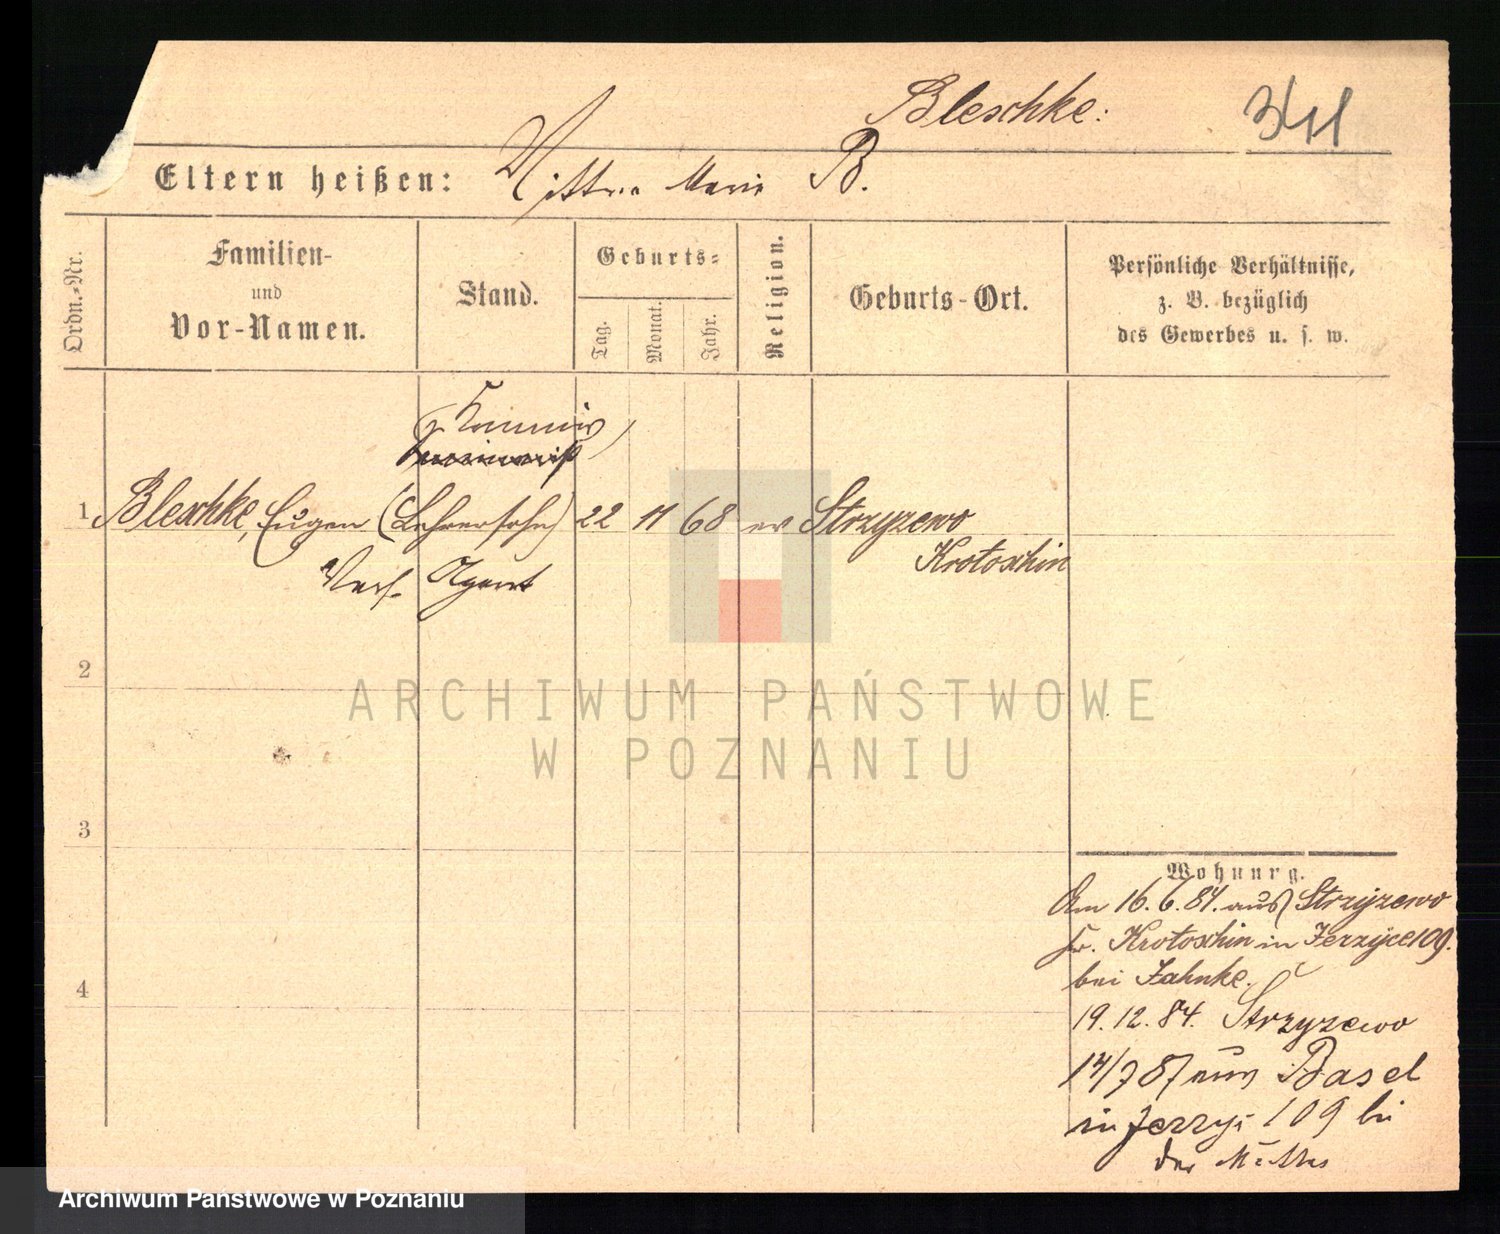 Bleschke:
341
Eltern heißen: Wittwe Marie B.
Ordn.-Nr.
Familien-
und
Vor-Namen.
Stand.
Geburts-
Tag.
Monat.
Jahr.
Religion.
Geburts-Ort.
Persönliche Verhältnisse,
z. B. bezüglich
des Gewerbes u. s. w.
Commis
1 Bleschke, Eugen (Lehrersohn) 22 11 68 ev Strzyzewo
Krotoschin
Vers. Agent
2
3
4
Wohnung.
Am 16.6.84. aus Strzyzewo
Kr. Krotoschin in Jerzyce 109.
bei Jahnke.
19.12.84. Strzyzewo
14/7 87 aus Basel
in Jerzyc 109 bei
der Mutter
ARCHIWUM PAŃSTWOWE
W POZNANIU
Archiwum Państwowe w Poznaniu